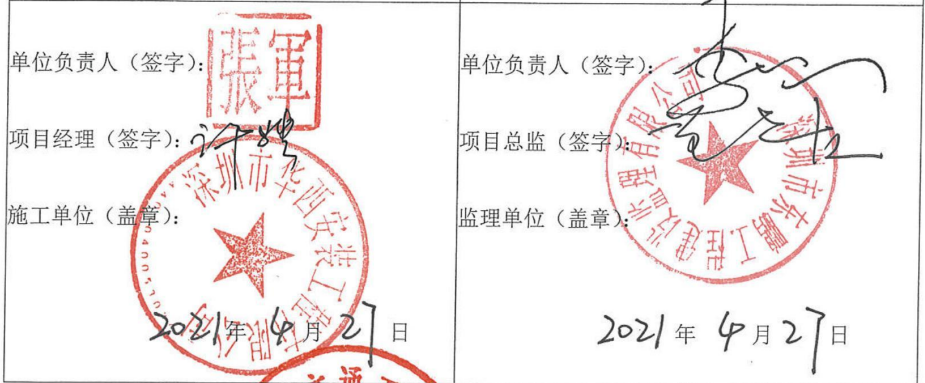 單位负责人（签字）：
張軍
项目经理（签字）：
施工单位（盖章）：
深圳市华西安装工程有限公司
2021年4月27日
单位负责人（签字）：
项目总监（签字）：
监理单位（盖章）：
深圳市东鹏工程建设监理有限公司
2021年4月27日